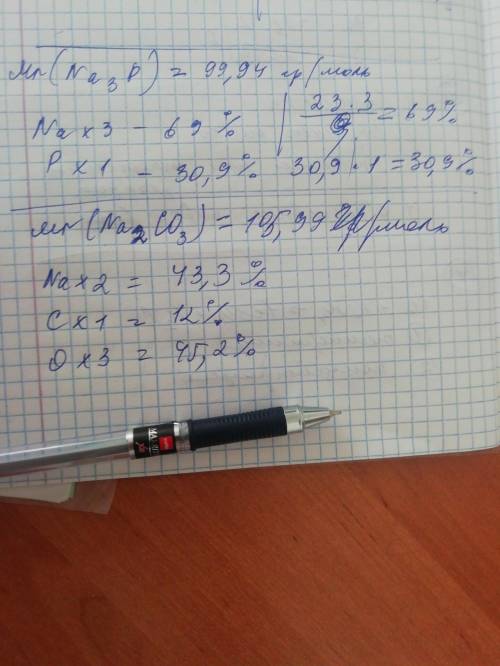 Mr(Na3P) = 99,94 гр/моль
Na x 3 - 69 %
23 . 3 = 69%
P x 1 - 30,9% 30,9 . 1 = 30,9%
Mr(Na2CO3) = 105,99 гр/моль
Na x 2 = 43,3 %
C x 1 = 12%
O x 3 = 45,2%